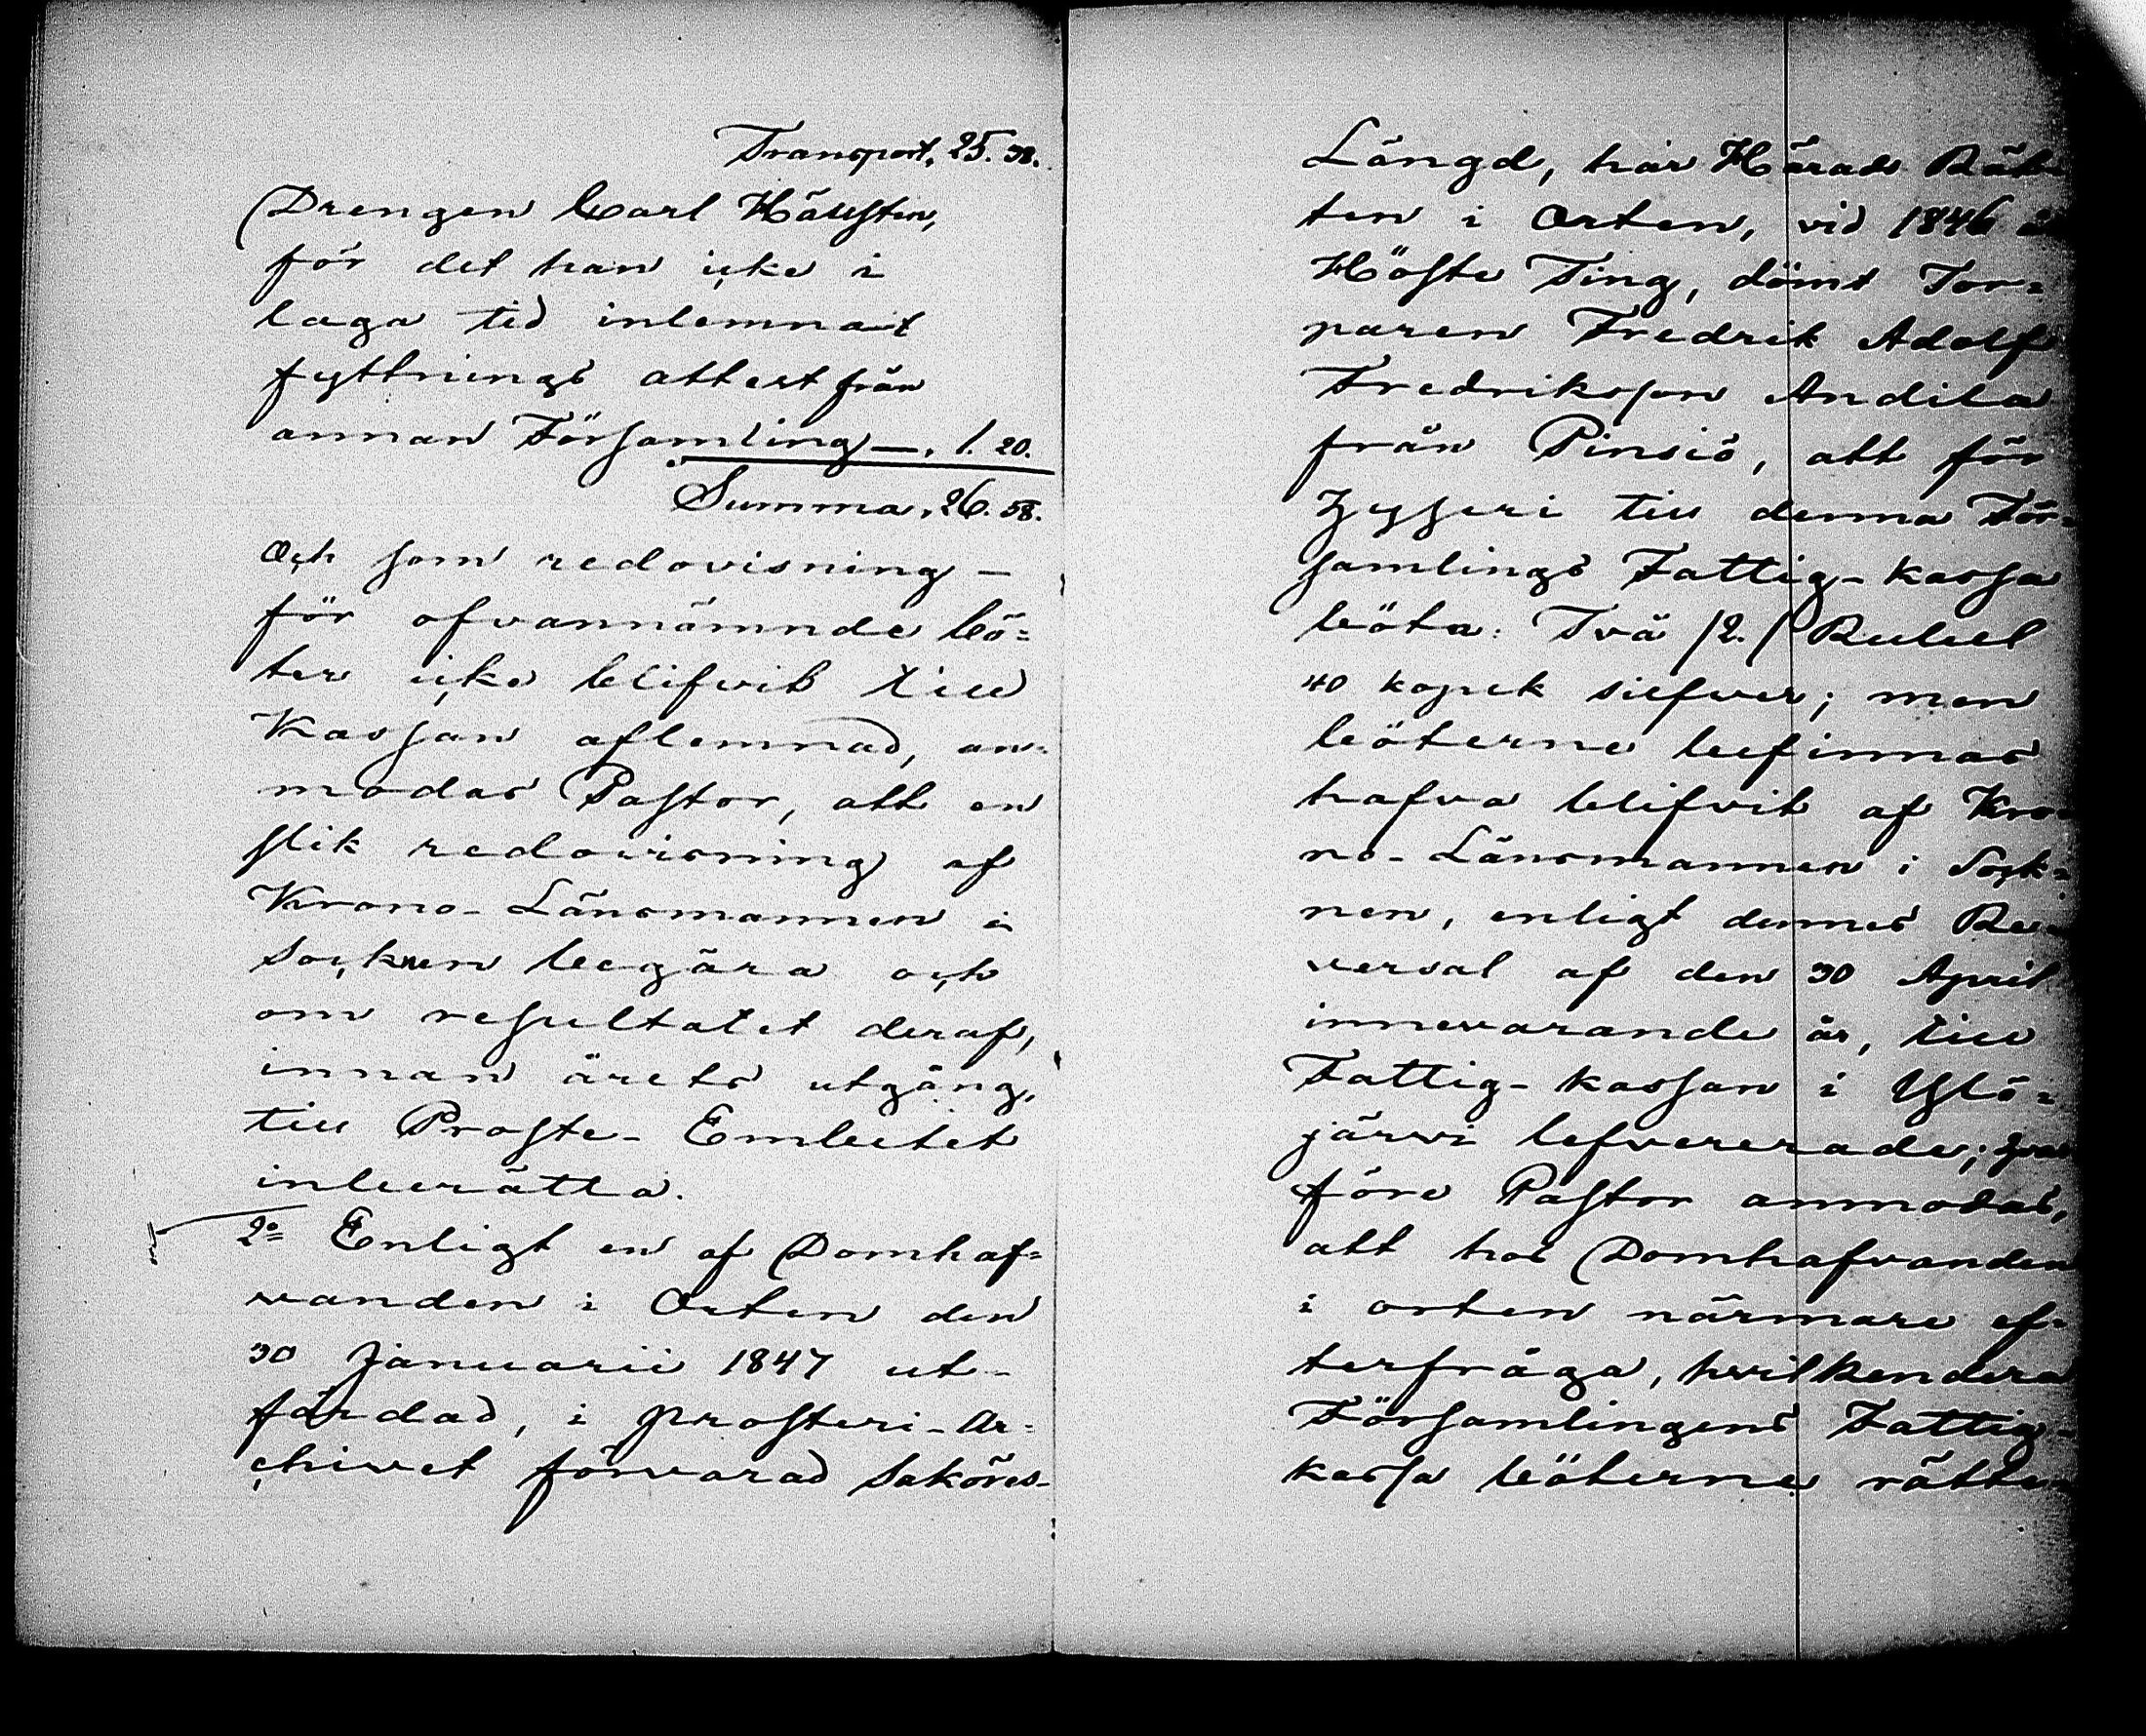 Transport, 25. 38.
Drengen Carl Hällsten,
för det han icke i
laga tid inlemnat
fyttnings attest från
annan Församling —. 1. 20.
Summa. 26. 58.
Och som redovisning —
för ofvannämnde bö=
ter icke blifvit till
Kassan aflemnad, an=
modas Pastor, att en
slik redovisning af
Krono-Länsmannen i
Socknen begära och
om resultatet deraf,
innan årets utgång,
till Proste-Embetet
inberätta.
2o= Enligt en af Domhaf=
vanden i Orten den
30 Januarii 1847 ut-
färdad, i Prosteri-Ar=
chivet förvarad Saköres-
Längd, har Härads Rät
ten i Orten, vid 1846
Höste Ting, dömt Tor=
paren Fredrik Adolf
Fredriksson Andila
från Pinsiö, att för
till denna För=
samlings Fattig-kassa
böta: Två /2./ Rubel
40 kopek silfver; men
böterne befinnas
hafva blifvit af Kro=
no-Länsmannen i Sock=
nen, enligt dennes Re=
versal af den 30 April
innevarande år, till
Fattig-kassan i Ylö=
järvi lefvererade; hvar
före Pastor anmodas,
att hos Domhafvanden
i orten närmare ef=
terfråga, hvilkendera
Församlingens Fattig-
kassa böterne rätte